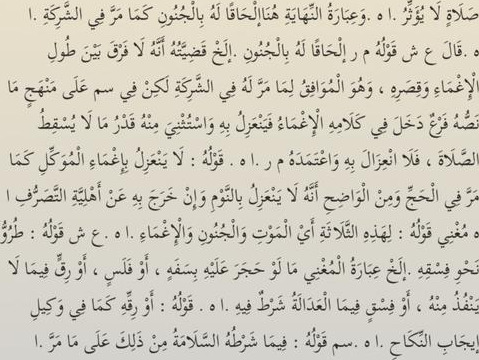 صَلَاةٍ لَا يُؤَثِّرُ .ا ه .وَعِبَارَةُ النِّهَايَةِ هُنَاإِلْحَاقًا لَهُ بِالْجُنُونِ كَمَا مَرَّ فِي الشَّرِكَةِ .ا
ه .قَالَ ع ش قَوْلُهُ م ر إلْحَاقًا لَهُ بِالْجُنُونِ .إلَخْ قَضِيَّتُهُ أَنَّهُ لَا فَرْقَ بَيْنَ طُولِ
الْإِغْمَاءِ وَقِصَرِهِ ، وَهُوَ الْمُوَافِقُ لِمَا مَرَّ لَهُ فِي الشَّرِكَةِ لَكِنْ فِي سم عَلَى مَنْهَجٍ مَا
نَصُّهُ فَرْعٌ دَخَلَ فِي كَلَامِهِ الْإِغْمَاءُ فَيَنْعَزِلُ بِهِ وَاسْتُثْنِيَ مِنْهُ قَدْرُ مَا لَا يُسْقِطُ
الصَّلَاةَ ، فَلَا انْعِزَالَ بِهِ وَاعْتَمَدَهُ م ر .ا ه . قَوْلُهُ : لَا يَنْعَزِلُ بِإِغْمَاءِ الْمُوَكِّلِ كَمَا
مَرَّ فِي الْحَجِّ وَمِنْ الْوَاضِحِ أَنَّهُ لَا يَنْعَزِلُ بِالنَّوْمِ وَإِنْ خَرَجَ بِهِ عَنْ أَهْلِيَّةِ التَّصَرُّفِ ا
ه مُغْنِي قَوْلُهُ : لِهَذِهِ الثَّلَاثَةِ أَيْ الْمَوْتِ وَالْجُنُونِ وَالْإِغْمَاءِ .ا ه .ع ش قَوْلُهُ : طُرُوُّ
نَحْوِ فِسْقِهِ .إلَخْ عِبَارَةُ الْمُغْنِي مَا لَوْ حَجَرَ عَلَيْهِ بِسَفَهٍ ، أَوْ فَلَسٍ ، أَوْ رِقٍّ فِيمَا لَا
يَنْفُذُ مِنْهُ ، أَوْ فِسْقٍ فِيمَا الْعَدَالَةُ شَرْطٌ فِيهِ .ا ه . قَوْلُهُ : أَوْ رِقِّهِ كَمَا فِي وَكِيلِ
إيجَابِ النِّكَاحِ .ا ه .سم قَوْلُهُ : فِيمَا شَرْطُهُ السَّلَامَةُ مِنْ ذَلِكَ عَلَى مَا مَرَّ .ا